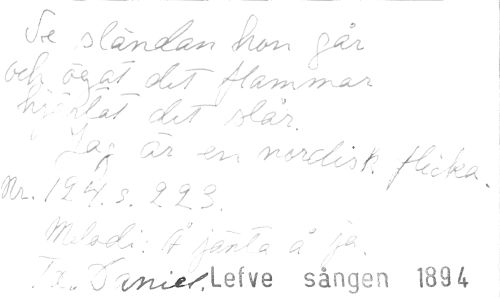 Se sländan hon går
och ögat det flammar
hjärtat det slår.
Jag är en nordisk flicka.
Nr. 194. s. 223.
Melodi: Å jänta å ja.
Lefve sången 1894